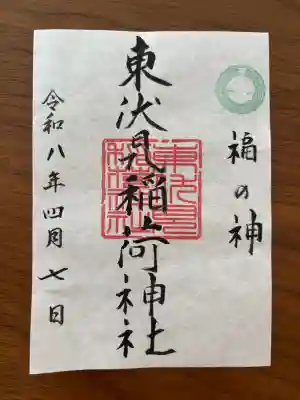 福の神
東伏見稲荷神社
令和八年四月七日